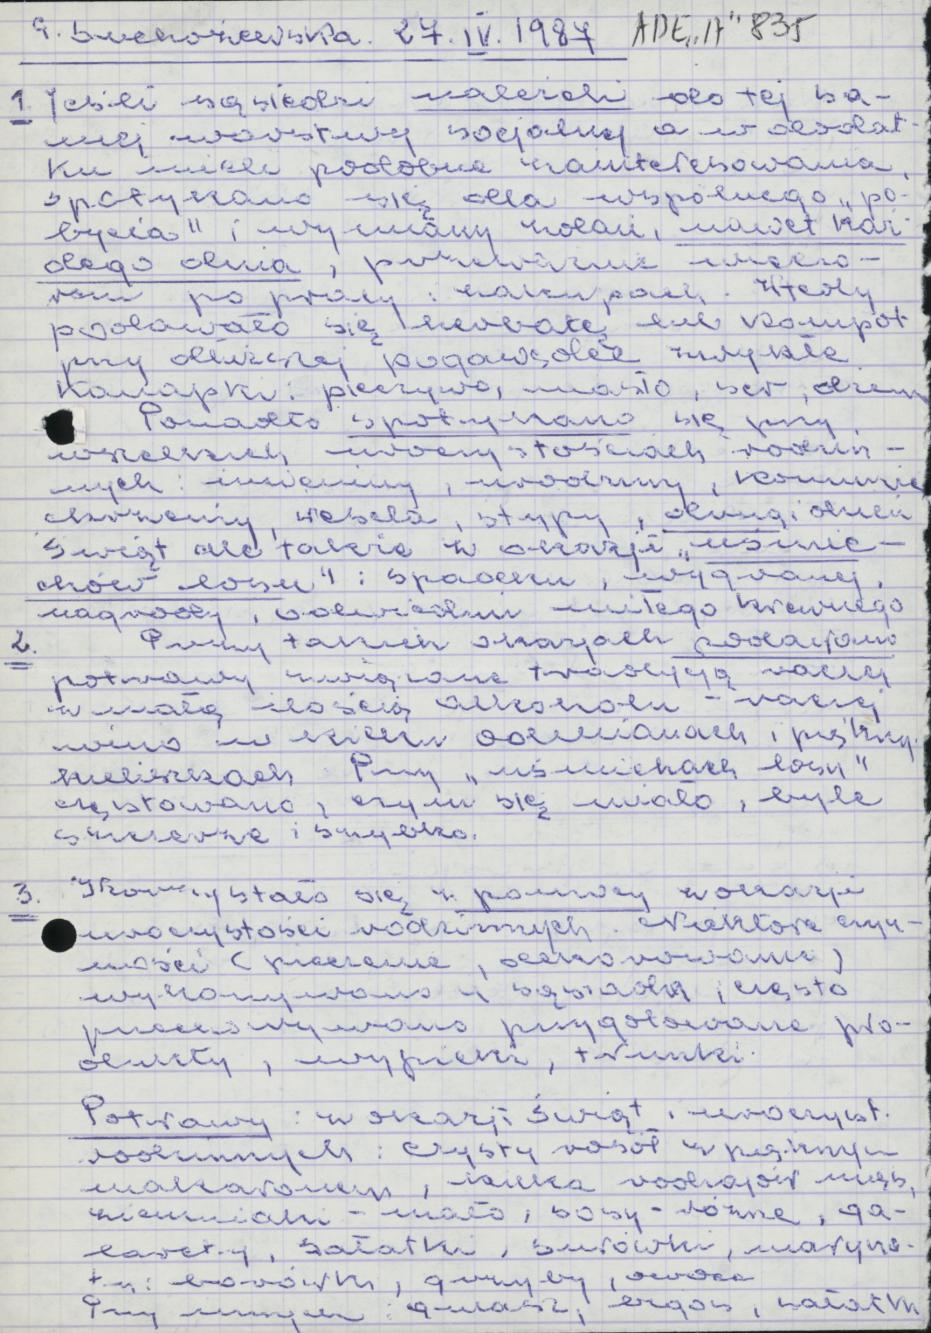 G. Suchorzewska. 27.IV.1987 ADE„A" 835
1. Jeśli sąsiedzi należeli do tej sa-
mej warstwy socjalnej a w dodat-
ku mieli podobne zainteresowania,
spotykano się dla wspólnego „po-
bycia" i wymiany zdań, nawet każ-
dego dnia, przeważnie wieczo-
rem po pracy i zakupach. Wtedy
podawało się herbatę lub kompot
przy dłuższej pogawędce zwykłe
kanapki: pieczywo, masło, ser, dżem
Ponadto spotykano się przy
wszelkich uroczystościach rodzin-
nych: imieniny, urodziny, komunie
chrzciny, wesela, stypy, drugi dzień
Świąt ale także z okazji „uśmie-
chów losu": spadku, wygranej,
nagrody, odwiedzin miłego krewnego
2. Przy takich okazjach podawano
potrawy związane tradycją raczej
z małą ilością alkoholu - raczej
wino w kilku odmianach i pięknych
kieliszkach. Przy „uśmiechach losu"
częstowano, czym się miało, byle
szczerze i szybko.
3. Korzystało się z pomocy z okazji
uroczystości rodzinnych. Niektóre czyn-
ności (pieczenie, dekorowanie)
wykonywano u sąsiadki i często
przechowywano przygotowane pro-
dukty, wypieki, trunki.
Potrawy: z okazji Świąt i uroczyst.
rodzinnych: czysty rosół z pysznym
makaronem, kilka rodzajów mięs,
ziemniaki - mało, sosy - różne, ga-
larety, sałatki, surówki, maryna-
ty: borówki, grzyby, owoce
Przy innych: gulasz, bigos, sałatki